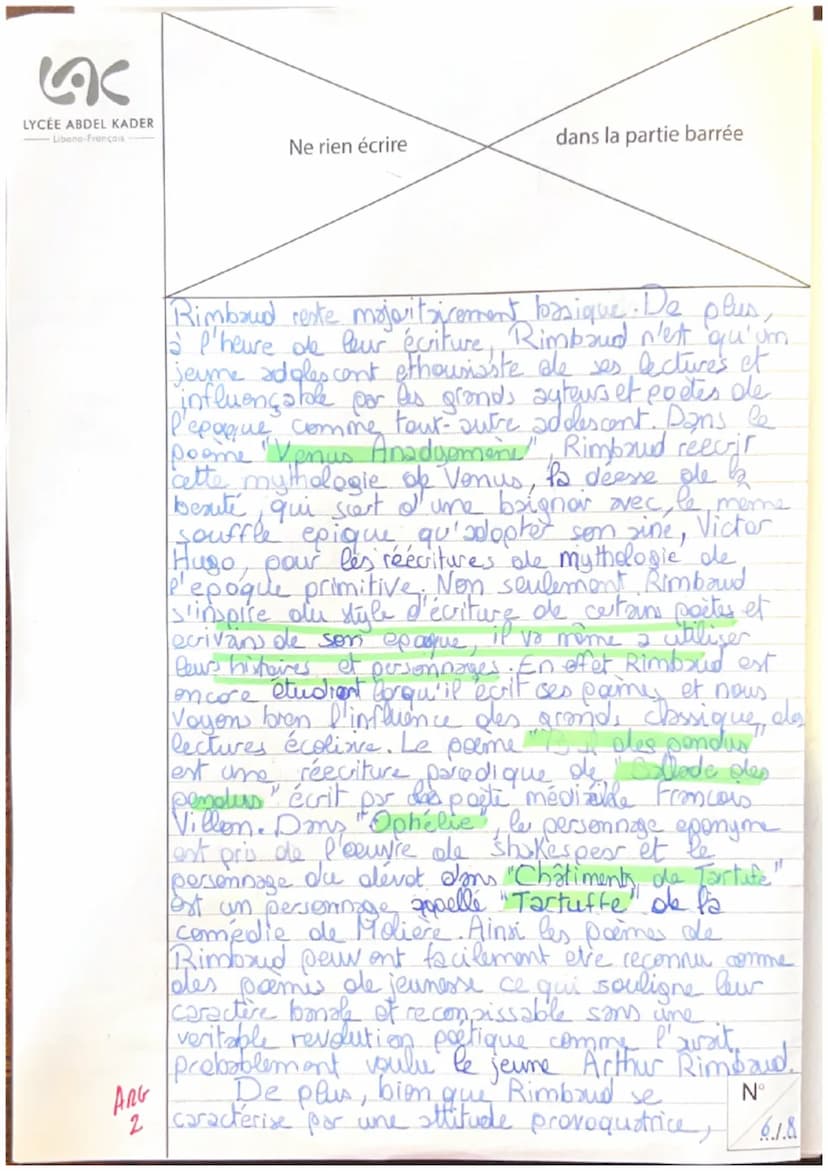 LYCÉE ABDEL KADER
Libano-Français
Ne rien écrire
dans la partie barrée
Rimbaud reste majoritairement basique. De plus,
à l'heure de leur écriture, Rimbaud n'est qu'un
jeune adolescent ethousiaste de ses lectures et
influençable par les grands auteurs et poètes de
l'epoque comme tout-autre adolescent. Dans le
poème "Venus Anadyomène", Rimbaud reecrit
cette mythologie de Venus, la déesse de la
beauté, qui sort d'une baignoir avec le meme
souffle epique qu'adopter son ainé, Victor
Hugo, pour les réécritures de mythologie de
l'epoque primitive. Non seulement Rimbaud
s'inspire du style d'écriture de certains poètes et
ecrivans de son epoque, il va même a utiliser
leurs histoires et personnages. En effet Rimbaud est
encore étudiant lorqu'il écrit ses poèmes et nous
voyons bien l'influence des grands classique, des
lectures écolière. Le poeme " des pendus"
est une réecriture parodique de "Ballade des
pendus" écrit par poète médiévale Francois
Villon. Dans "Ophélie", le personnage eponyme
est pris de l'oeuvre de Shakespear et le
personnage du dévot dans "Châtiments de Tartufe"
est un personnage appellé "Tartuffe" de la
comédie de Molière. Ainsi les poèmes de
Rimbaud peuvent facilement etre reconnu comme
des poemes de jeunesse ce qui souligne leur
caractère banale et reconnaissable sans une
veritable revolution poétique comme l'aurait
probablement voulu le jeune Arthur Rimbaud.
ARG
2
De plus, bien que Rimbaud se
caractérise par une attitude provoquatrice,
N°
6/8